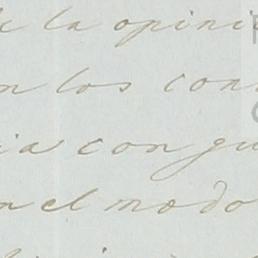 de la opini
n los con
ia con gu
n el modo